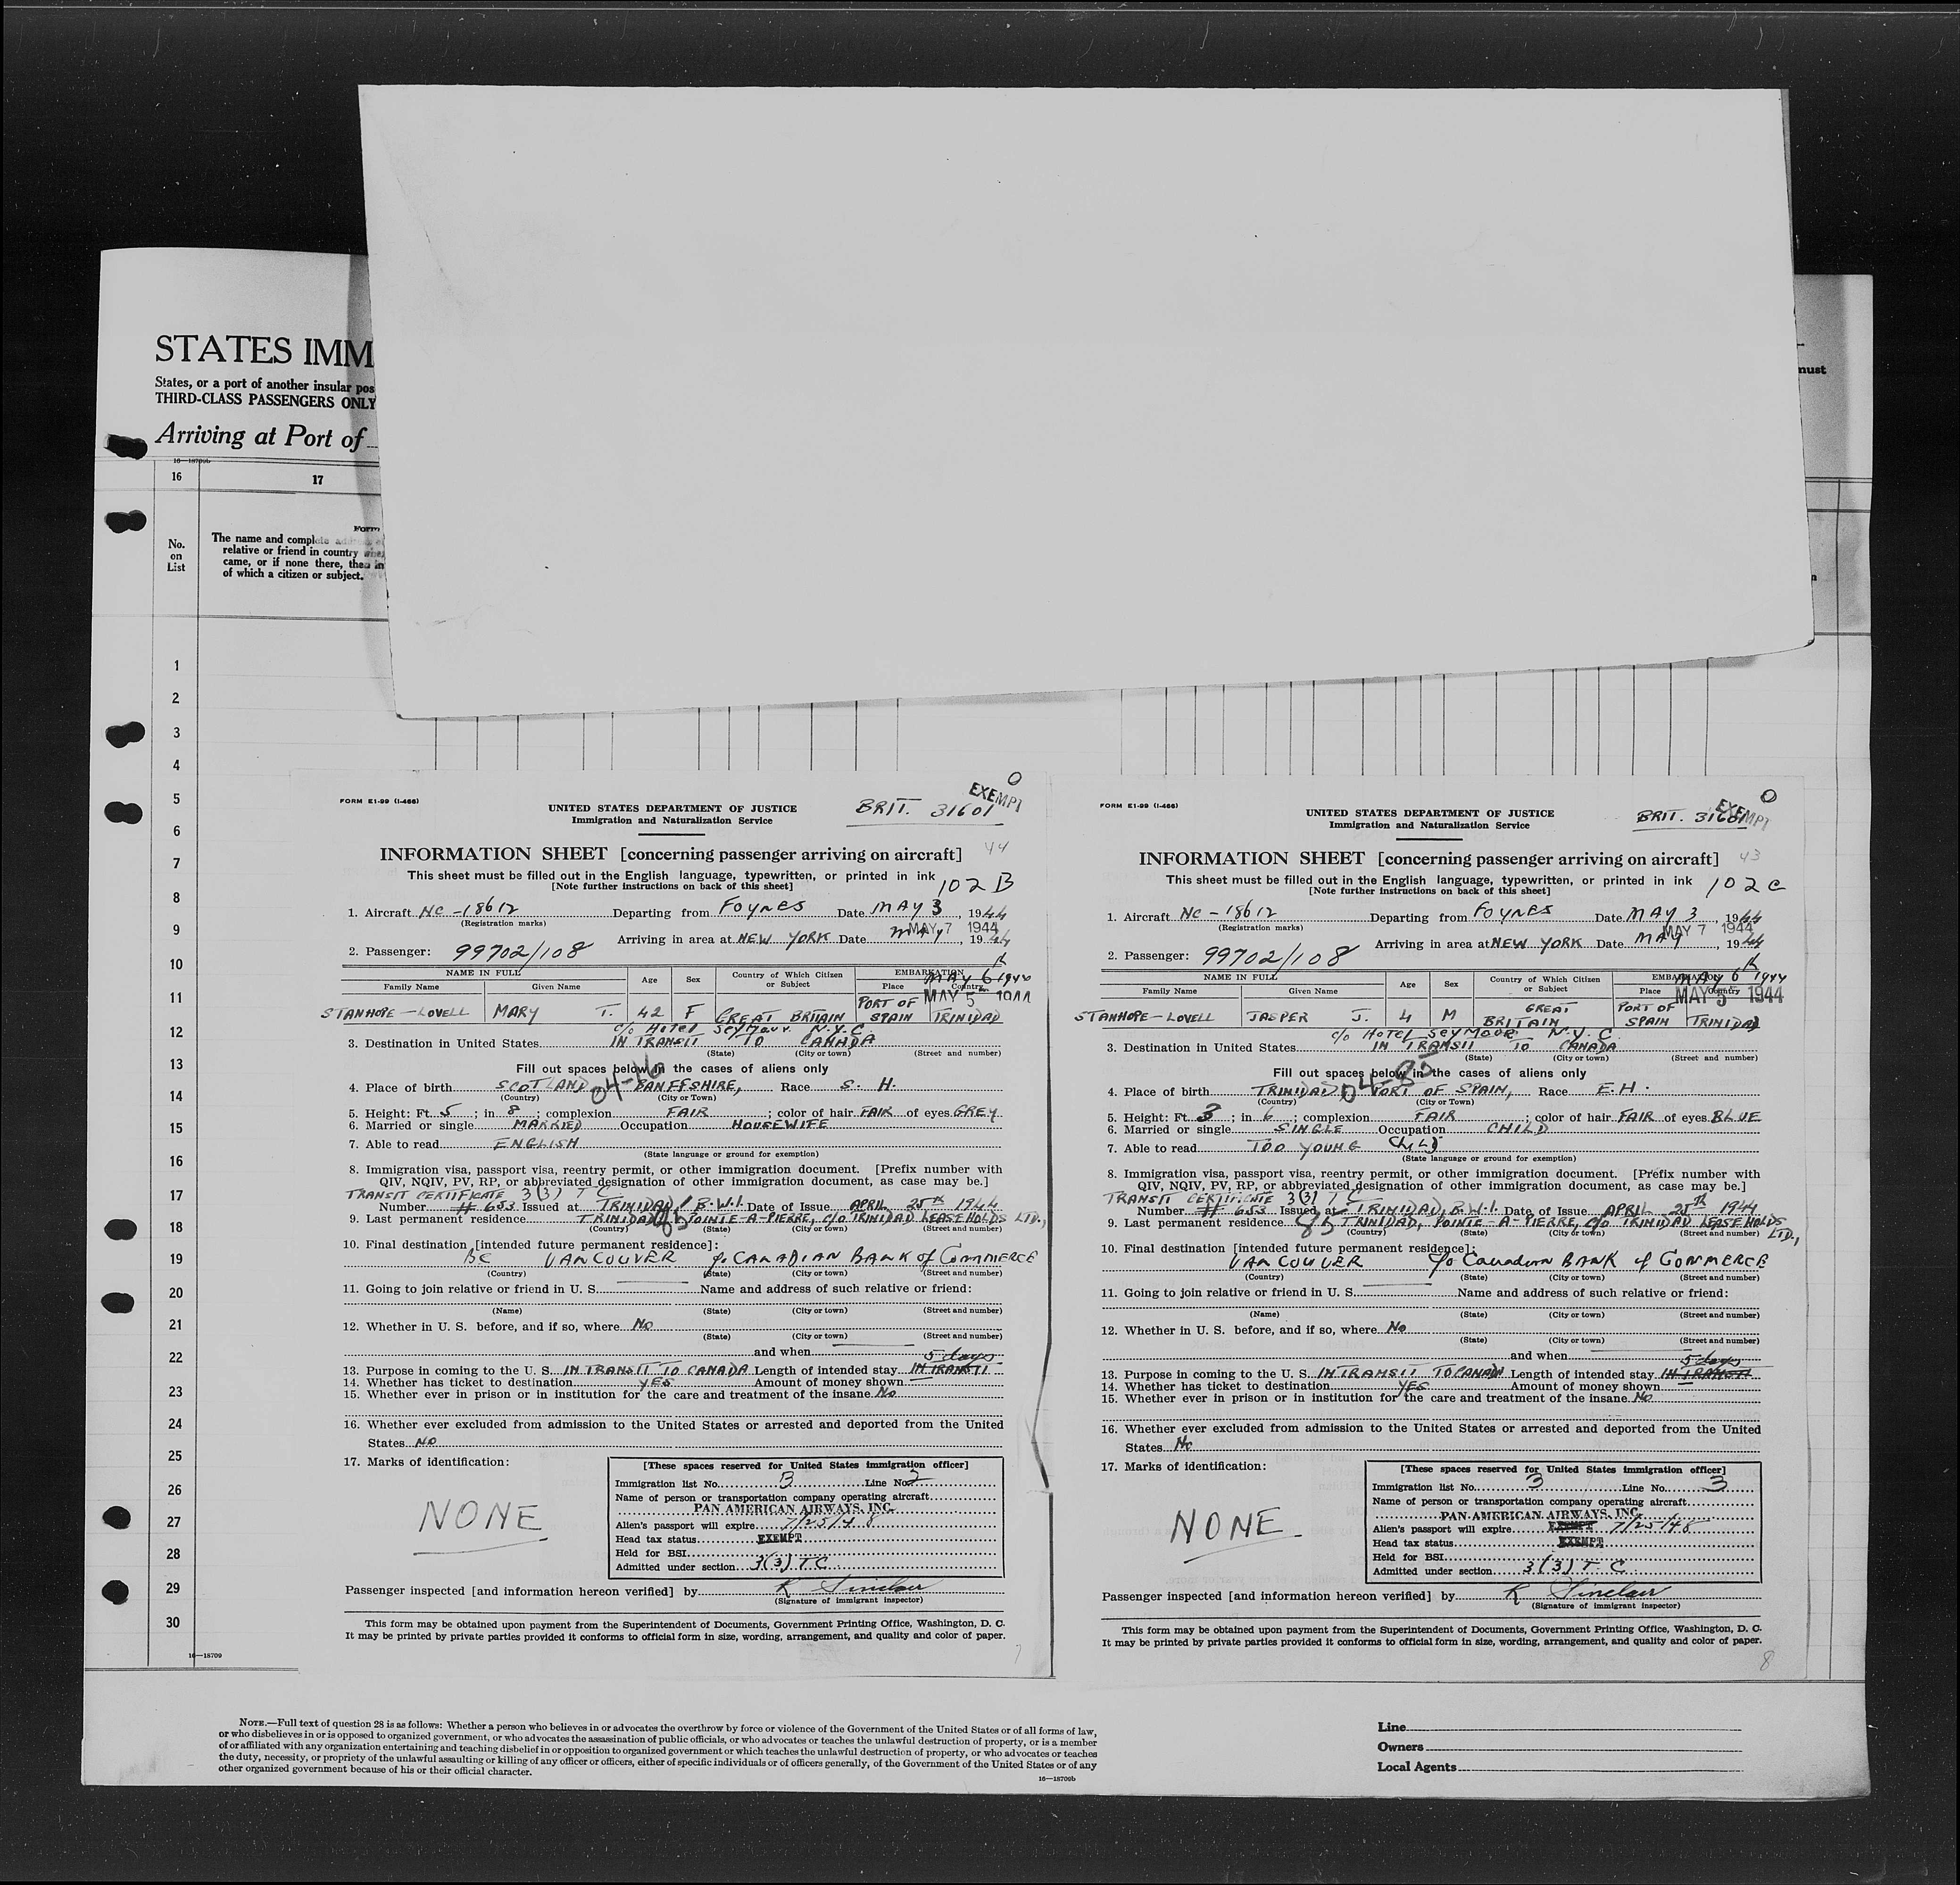 STATES IMM
States, or a port of another insular pos
THIRD-CLASS PASSENGERS ONLY
Arriving at Port of
must
16—18709b
16
17
Form
No.
on
List
The name and complete
relative or friend in country
came, or if none there, then in
of which a citizen or subject.
1
2
3
4
5
6
7
8
9
10
11
12
13
14
15
16
17
18
19
20
21
22
23
24
25
26
27
28
29
30
16—18709
FORM E1-99 (I-466)
UNITED STATES DEPARTMENT OF JUSTICE
Immigration and Naturalization Service
BRIT. 31601
EXEMPT
INFORMATION SHEET [concerning passenger arriving on aircraft] 44
This sheet must be filled out in the English language, typewritten, or printed in ink
[Note further instructions on back of this sheet]
102 B
1. Aircraft NC-18612 Departing from FOYNES Date MAY 3, 1944
(Registration marks)
MAY 7 1944
Arriving in area at NEW YORK Date MAY, 1944
2. Passenger: 99702/108
NAME IN FULL
Family Name
Given Name
Age
Sex
Country of Which Citizen
or Subject
EMBARKATION
Place
Country
MAY 6 1944
MAY 5 1944
STANHOPE-LOVELL MARY T. 42 F GREAT BRITAIN PORT OF SPAIN TRINIDAD
c/o Hotel Seymour N.Y.C.
3. Destination in United States IN TRANSIT TO CANADA
(State) (City or town) (Street and number)
Fill out spaces below in the cases of aliens only
04-16
4. Place of birth SCOTLAND BANFFSHIRE, Race S. H.
(Country) (City or Town)
5. Height: Ft. 5; in 8; complexion FAIR; color of hair FAIR of eyes GREY
6. Married or single MARRIED Occupation HOUSEWIFE
7. Able to read ENGLISH
(State language or ground for exemption)
8. Immigration visa, passport visa, reentry permit, or other immigration document. [Prefix number with
QIV, NQIV, PV, RP, or abbreviated designation of other immigration document, as case may be.]
TRANSIT CERTIFICATE 3(3) T C
Number # 653 Issued at TRINIDAD, B.W.I. Date of Issue APRIL 25th 1944
9. Last permanent residence TRINIDAD POINTE-A-PIERRE, C/O TRINIDAD LEASEHOLDS LTD.,
(Country) (State) (City or town) (Street and number)
10. Final destination [intended future permanent residece]:
BC VANCOUVER c/o CANADIAN BANK of COMMERCE
(Country) (State) (City or town) (Street and number)
11. Going to join relative or friend in U. S. Name and address of such relative or friend:
(Name) (State) (City or town) (Street and number)
12. Whether in U. S. before, and if so, where No
(State) (City or town) (Street and number)
and when
5 days
13. Purpose in coming to the U. S. IN TRANSIT TO CANADA Length of intended stay IN TRANSIT
14. Whether has ticket to destination YES Amount of money shown —
15. Whether ever in prison or in institution for the care and treatment of the insane No
16. Whether ever excluded from admission to the United States or arrested and deported from the United
States NO
17. Marks of identification:
NONE
[These spaces reserved for United States immigration officer]
Immigration list No. 3 Line No. 2
Name of person or transportation company operating aircraft
PAN AMERICAN AIRWAYS, INC.
Alien's passport will expire 7/25/48
Head tax status EXEMPT
Held for BSI
Admitted under section 3(3) T C
Passenger inspected [and information hereon verified] by R Sinclair
(Signature of immigrant inspector)
This form may be obtained upon payment from the Superintendent of Documents, Government Printing Office, Washington, D. C.
It may be printed by private parties provided it conforms to official form in size, wording, arrangement, and quality and color of paper.
7
FORM E1-99 (I-466)
UNITED STATES DEPARTMENT OF JUSTICE
Immigration and Naturalization Service
BRIT. 31601
EXEMPT
INFORMATION SHEET [concerning passenger arriving on aircraft] 43
This sheet must be filled out in the English language, typewritten, or printed in ink
[Note further instructions on back of this sheet]
102 C
1. Aircraft NC-18612 Departing from FOYNES Date MAY 3, 1944
(Registration marks)
MAY 7 1944
Arriving in area at NEW YORK Date MAY, 1944
2. Passenger: 99702/108
NAME IN FULL
Family Name
Given Name
Age
Sex
Country of Which Citizen
or Subject
EMBARKATION
Place
Country
MAY 6 1944
MAY 5 1944
STANHOPE-LOVELL JASPER J. 4 M GREAT BRITAIN PORT OF SPAIN TRINIDAD
c/o HOTEL SEYMOUR N.Y.C.
3. Destination in United States IN TRANSIT TO CANADA
(State) (City or town) (Street and number)
Fill out spaces below in the cases of aliens only
04-85
4. Place of birth TRINIDAD PORT OF SPAIN, Race E.H.
(Country) (City or Town)
5. Height: Ft. 3; in 6; complexion FAIR; color of hair FAIR of eyes BLUE
6. Married or single SINGLE Occupation CHILD
7. Able to read TOO YOUNG CHILD
(State language or ground for exemption)
8. Immigration visa, passport visa, reentry permit, or other immigration document. [Prefix number with
QIV, NQIV, PV, RP, or abbreviated designation of other immigration document, as case may be.]
TRANSIT CERTIFICATE 3(3) T C
Number # 653 Issued at TRINIDAD, B.W.I. Date of Issue APRIL 25th 1944
9. Last permanent residence TRINIDAD, POINTE-A-PIERRE, C/O TRINIDAD LEASEHOLDS LTD.,
(Country) (State) (City or town) (Street and number)
10. Final destination [intended future permanent residece]:
VANCOUVER c/o Canadian BANK of COMMERCE
(Country) (State) (City or town) (Street and number)
11. Going to join relative or friend in U. S. Name and address of such relative or friend:
(Name) (State) (City or town) (Street and number)
12. Whether in U. S. before, and if so, where No
(State) (City or town) (Street and number)
and when
5 days
13. Purpose in coming to the U. S. IN TRANSIT TO CANADA Length of intended stay IN TRANSIT
14. Whether has ticket to destination YES Amount of money shown —
15. Whether ever in prison or in institution for the care and treatment of the insane No
16. Whether ever excluded from admission to the United States or arrested and deported from the United
States No
17. Marks of identification:
NONE
[These spaces reserved for United States immigration officer]
Immigration list No. 3 Line No. 3
Name of person or transportation company operating aircraft
PAN AMERICAN AIRWAYS, INC.
Alien's passport will expire EXEMPT 7/25/48
Head tax status EXEMPT
Held for BSI
Admitted under section 3(3) T C
Passenger inspected [and information hereon verified] by R Sinclair
(Signature of immigrant inspector)
This form may be obtained upon payment from the Superintendent of Documents, Government Printing Office, Washington, D. C.
It may be printed by private parties provided it conforms to official form in size, wording, arrangement, and quality and color of paper.
8
NOTE.—Full text of question 28 is as follows: Whether a person who believes in or advocates the overthrow by force or violence of the Government of the United States or of all forms of law,
or who disbelieves in or is opposed to organized government, or who advocates the assassination of public officials, or who advocates or teaches the unlawful destruction of property, or is a member
of or affiliated with any organization entertaining and teaching disbelief in or opposition to organized government or which teaches the unlawful destruction of property, or who advocates or teaches
the duty, necessity, or propriety of the unlawful assaulting or killing of any officer or officers, either of specific individuals or of officers generally, of the Government of the United States or of any
other organized government because of his or their official character.
16—18709b
Line
Owners
Local Agents